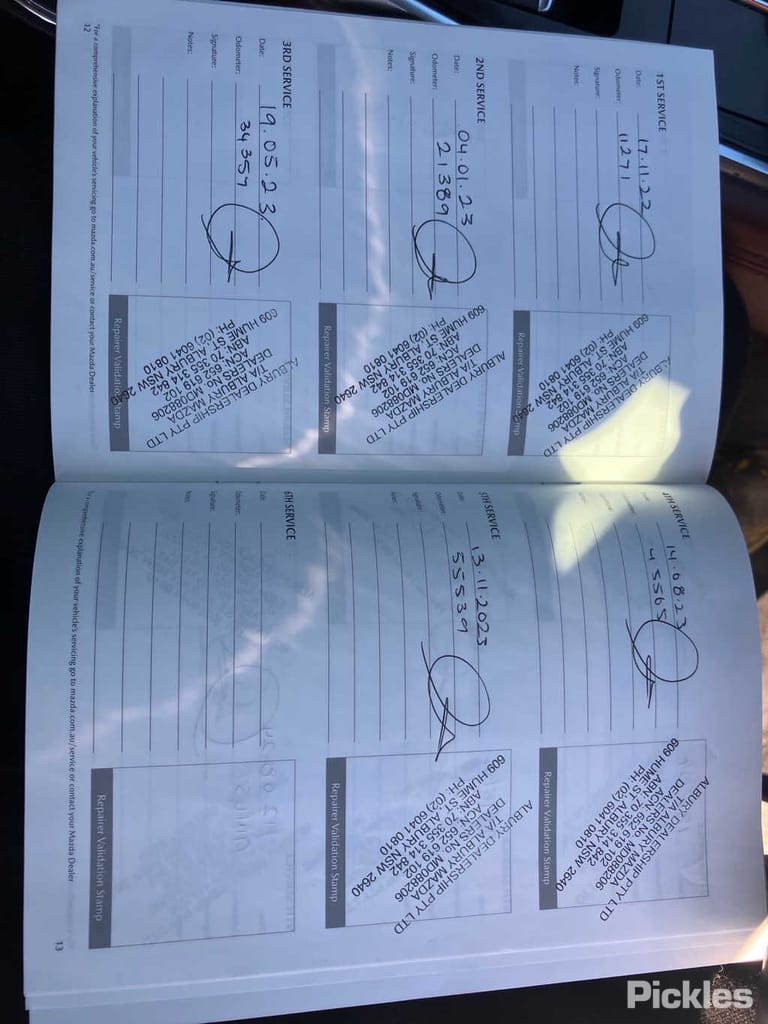 1ST SERVICE
Date: 17.11.22
Odometer: 11271
Signature:
Notes:
ALBURY DEALERSHIP PTY LTD
DEALERS NO MD088206
T/A ALBURY MAZDA
ACN 652 619 102
ABN 70 355 314 842
609 HUME ST ALBURY NSW 2640
PH: (02) 6041 0810
Repairer Validation Stamp
2ND SERVICE
Date: 04.01.23
Odometer: 21389
Signature:
Notes:
ALBURY DEALERSHIP PTY LTD
T/A ALBURY MAZDA
DEALERS NO MD088206
ACN 652 619 102
ABN 70 355 314 842
609 HUME ST ALBURY NSW 2640
PH: (02) 6041 0810
Repairer Validation Stamp
3RD SERVICE
Date: 19.05.23
Odometer: 34359
Signature:
Notes:
ALBURY DEALERSHIP PTY LTD
T/A ALBURY MAZDA
DEALERS NO MD088206
ACN 652 619 102
ABN 70 355 314 842
609 HUME ST ALBURY NSW 2640
PH: (02) 6041 0810
Repairer Validation Stamp
*For a comprehensive explanation of your vehicle's servicing go to mazda.com.au/service or contact your Mazda Dealer
12
4TH SERVICE
14.08.23
45565
ALBURY DEALERSHIP PTY LTD
T/A ALBURY MAZDA
DEALERS NO MD088206
ACN 652 619 102
ABN 70 355 314 842
609 HUME ST ALBURY NSW 2640
PH: (02) 6041 0810
Repairer Validation Stamp
5TH SERVICE
Date: 13.11.2023
Odometer: 55539
Signature:
Notes:
ALBURY DEALERSHIP PTY LTD
T/A ALBURY MAZDA
DEALERS NO MD088206
ACN 652 619 102
ABN 70 355 314 842
609 HUME ST ALBURY NSW 2640
PH: (02) 6041 0810
Repairer Validation Stamp
6TH SERVICE
Date:
Odometer:
Signature:
Notes:
Repairer Validation Stamp
*For a comprehensive explanation of your vehicle's servicing go to mazda.com.au/service or contact your Mazda Dealer
13
Pickles